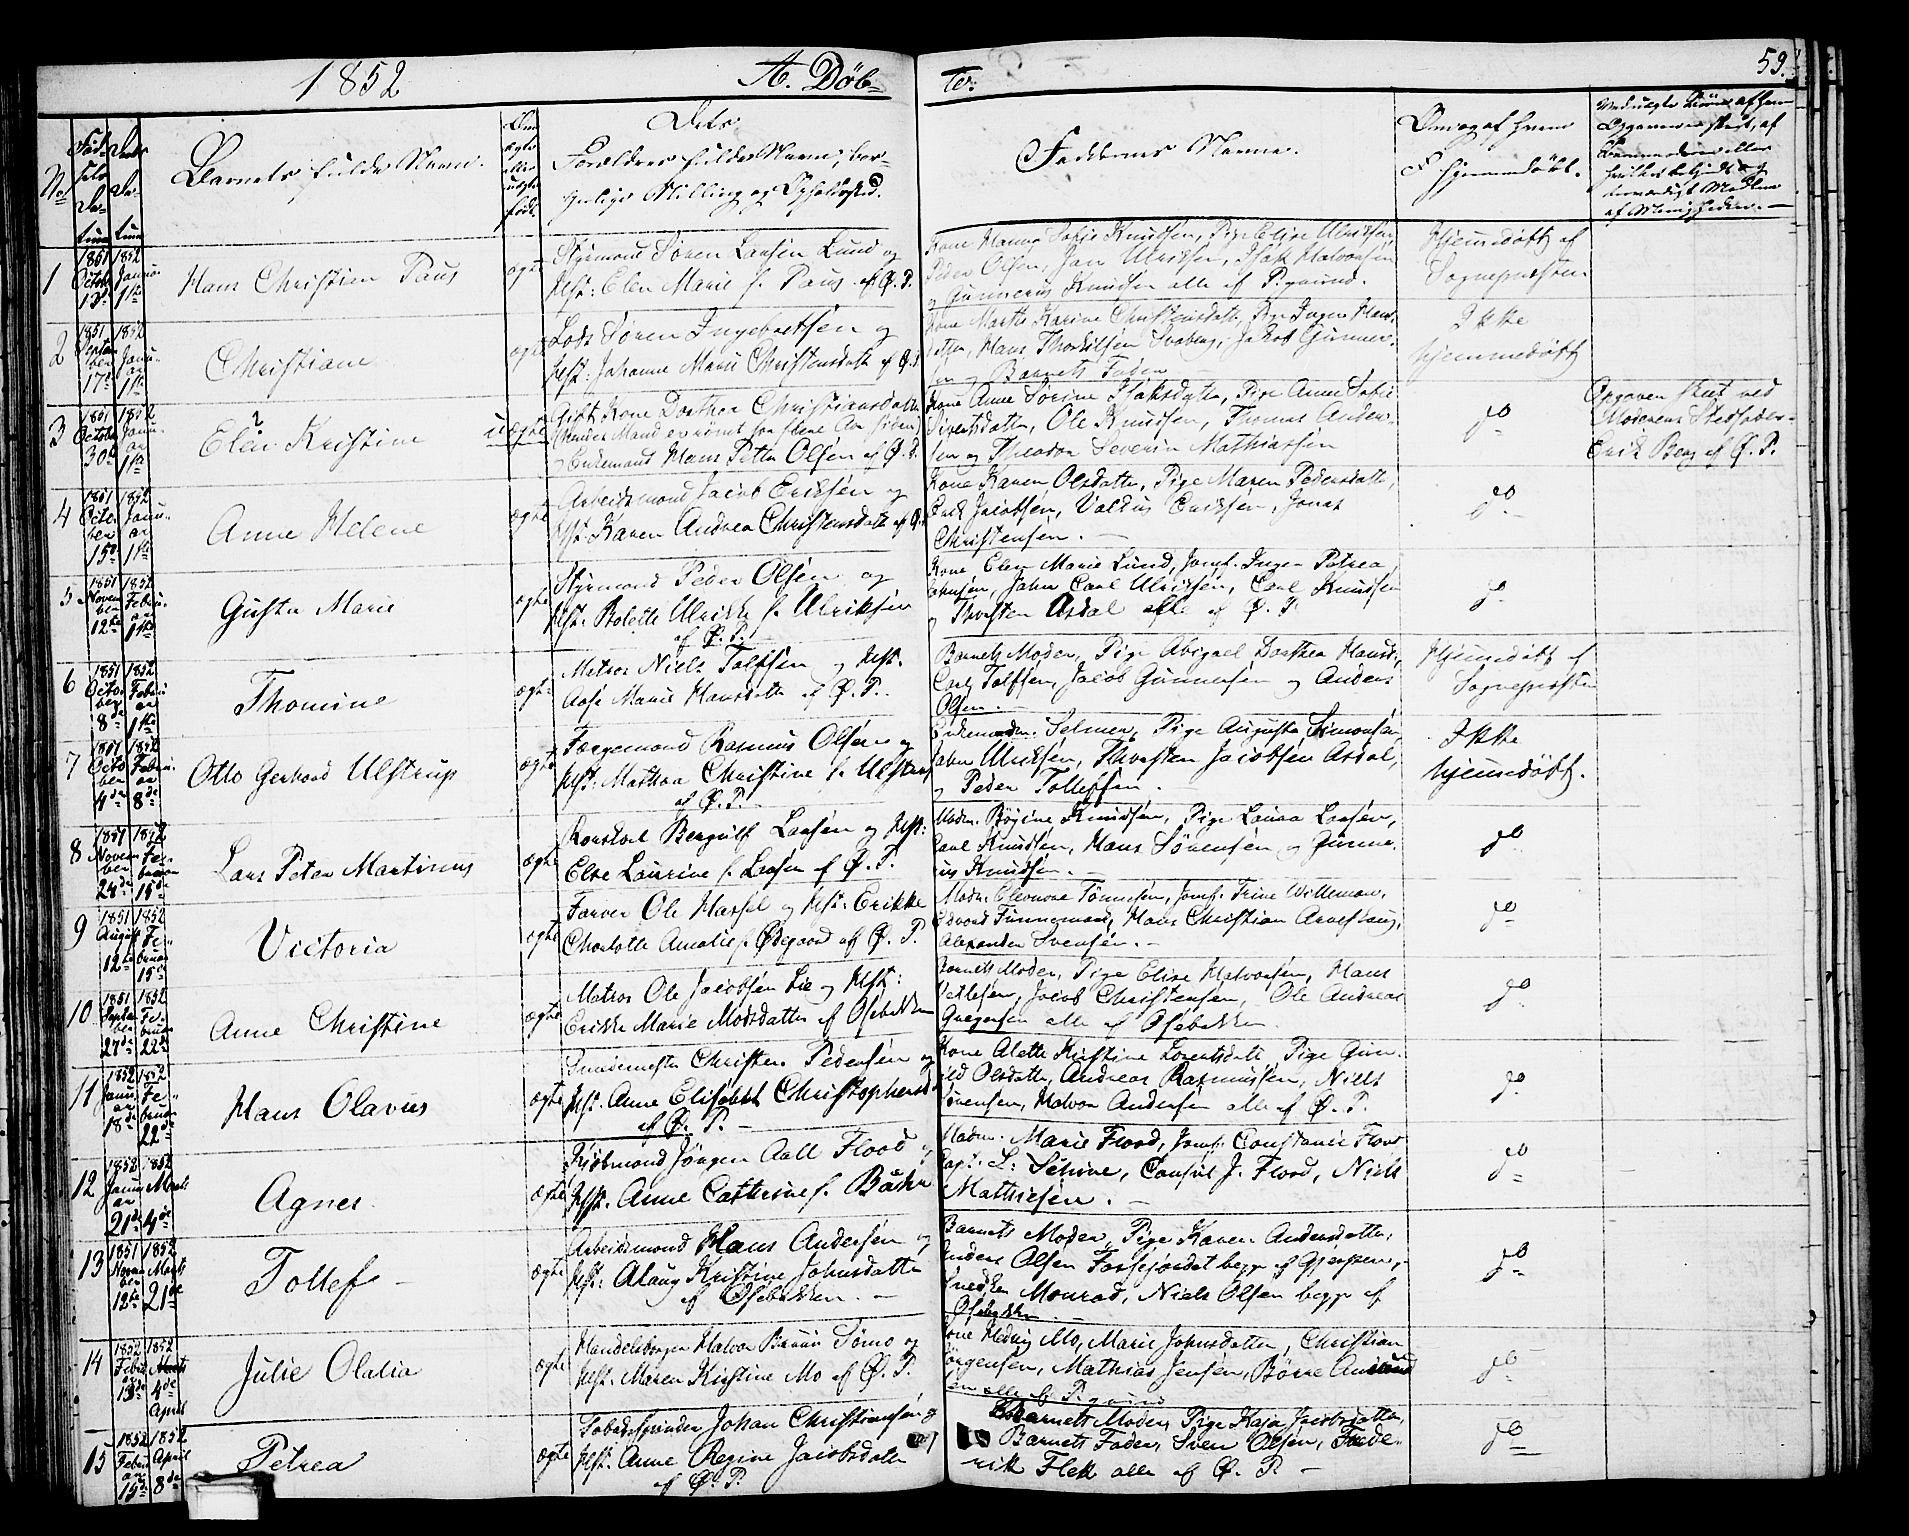 1852
A. Døb-
te:
59.
No
Barnets fulde Navn.
Dets
Forældres fulde Navn, bor-
gerlige Stilling og Opholdssted.
Faddernes Navne.
Om og af hvem
Hjemmedøbt.
1
1851 1852
Octob Janu-
13de 1ste
Hans Christian Paus
ægte
Styrmand Søren Larsen Lund og
Hst: Elen Marie f. Paus af Ø. P.
Kone Hanna Sofie Knudsen, Pige Elise Ulriksen,
Peder Olsen, Jan Ulriksen, Isak Halvorsen
og Gunnerius Knudsen alle af P.grund.
Hjemmedøbt af
Sognepresten
2
1851 1852
Septem Janu-
ber ar
17de 1ste
Christiane
ægte
Lods Søren Ingebretsen og
Hst: Johanne Marie Christensdatter af Ø. P.
Kone Marthe Karine Christensdatt, Pige Inger Hans-
Hans Thorkilsen Svaberg, Jakob Gunner-
sen og Barnets Fader
Ikke
hjemmedøbt
3
1851 1852
October Janu-
ar
30te 1ste
Elen Kristine
uægte
Gift Kone Dorthea Christiansdatter
(hendes Mand er rømt for flere Aar siden)
Enkemand Hans Petter Olsen af Ø. P.
Kone Anne Sørine Isaksdatter, Pige Anne Sofie
Sivertsdatter, Ole Knudsen, Thomas Ander-
sen og Theodor Severin Mathiassen
do
Opgaven skeet ved
Moderens Stedfader
Erik Berg af Ø. P.
4
1851 1852
Octo- Janu-
ber ar
15de 1ste
Anne Helene
ægte
Arbeidsmand Jacob Eriksen og
Hst: Karen Andrea Christensdatt af Ø.
Kone Karen Olsdatter, Pige Maren Pedersdatter,
Erik Jacobsen, Valdus Eriksen, Jonas
Christensen.
do
5
1851 1852
Novem Febru-
ber ar
12te 1ste
Gusta Marie
ægte
Styrmand Peder Olsen og
Hst: Bolette Ulrikke f. Ulriksen
af Ø. P.
Kone Elen Marie Lund, Jomf. Inger Petrea
Johnsen, John Carl Ulriksen, Carl Knudsen
og Thorsten Asdal alle af Ø. P.
do
6
1851 1852
Octo- Febru
ber ar
8de 1ste
Thomine
ægte
Matros Niels Tolfsen og Hst.
Aase Marie Hansdatte af Ø. P.
Barnets Moder, Pige Abigael Dorthea Hansd,
Carl Tolfsen, Jacob Gunnersen og Anders
Olsen.
Hjemmedøbt af
Sognepresten
7
1851 1852
Octo Febru-
ber ar
4de 8de
Otto Gerhard Ulstrup
ægte
Færgemand Rasmus Olsen og
Hst: Marthea Christine f. Ulstrup
af Ø. P.
Enkemadm. Selmer, Pige Augusta Simonsen,
John Ulriksen, Thorsten Jacobsen Asdal,
og Peder Tollefsen.
Ikke
hjemmedøbt.
8
1851 1852
Novem Fe-
ber bruar
24de 15de
Lars Peter Martinius
ægte
Karskarl Bergulf Larsen og Hst:
Else Laurine f. Larsen af Ø. P.
Madm. Bøgine Knudsen, Pige Laura Larsen,
Carl Knudsen, Hans Sørensen og Gunne-
rius Knudsen.
do
9
1851 1852
August Fe-
bruar
12te 15de
Victoria
ægte
Farver Ole Hassel og Hst. Erikke
Charlotte Amalie f. Ødegaard af Ø. P.
Madm. Eleonora Tønnesen, Jomf. Trine Willeman,
Edvard Funnemark, Hans Christian Arveschoug,
Alexander Svensen.
do
10
1851 1852
Septem Fe-
ber bruar
27de 22de
Anne Christine
ægte
Matros Ole Jacobsen Lie og Hst:
Erikke Marie Madsdatter af Osebakken
Barnets Moder, Pige Elise Halvorsen, Hans
Detlefsen, Jacob Christensen, Ole Andreas
Gregersen alle af Osebakken.
do
11
1852 1852
Janu- Fe-
ar bruar
18de 22de
Hans Olavus
ægte
Smedemester Christen Pedersen og
Hst. Anne Elisabeth Christophersd
af Ø. P.
Kone Alette Kirstine Lorentsdatt, Pige Gun-
ild Olsdatter, Andreas Rasmussen, Niels
Sørensen, Halvor Andersen alle af Ø. P.
do
12
1852 1852
Janu Marts
ar
21de 4de
Agnes
ægte
Kjøbmand Jørgen Aall Flood og
Hst. Anne Cathrine f. Bøhn
Madm. Marie Flood, Jomf. Constance Flood
Capt. L: Schive, Consul J. Flood, Niels
Mathiesen.
do
13
1851 1852
Novem Marts
ber
12te 21de
Tollef
ægte
Arbeidsmand Hans Andersen og
Hst: Alaug Kristine Johnsdatter
af Osebakken.
Barnets Moder, Pige Karen Andersdatter,
Anders Olsen Fossejordet begge af Gjerpen,
Snedker Monrad, Niels Olsen begge af
Osebakken
do
14
1852 1852
Febru Marts
ar 4de
13de April
Julie Olalia
ægte
Handelsborger Halvor Bruun Tømo og
Hst. Maren Kirstine Mo af Ø. P.
Kone Hedvig Mo, Marie Johnsdatter, Christian
Jørgensen, Mathias Jensen, Børre
alle af P.grund
do
15
1852 1852
Febru April
ar
15de 8de
Petrea
ægte
Tobaksspinder Johan Christiansen og
Hst. Anne Regine Jacobsdatter
af Ø. P.
Barnets Moder, Pige Kaja Jacobsdatter,
Barnets Fader, Sven Olsen, Frede-
rik Flek alle af Ø. P.
do